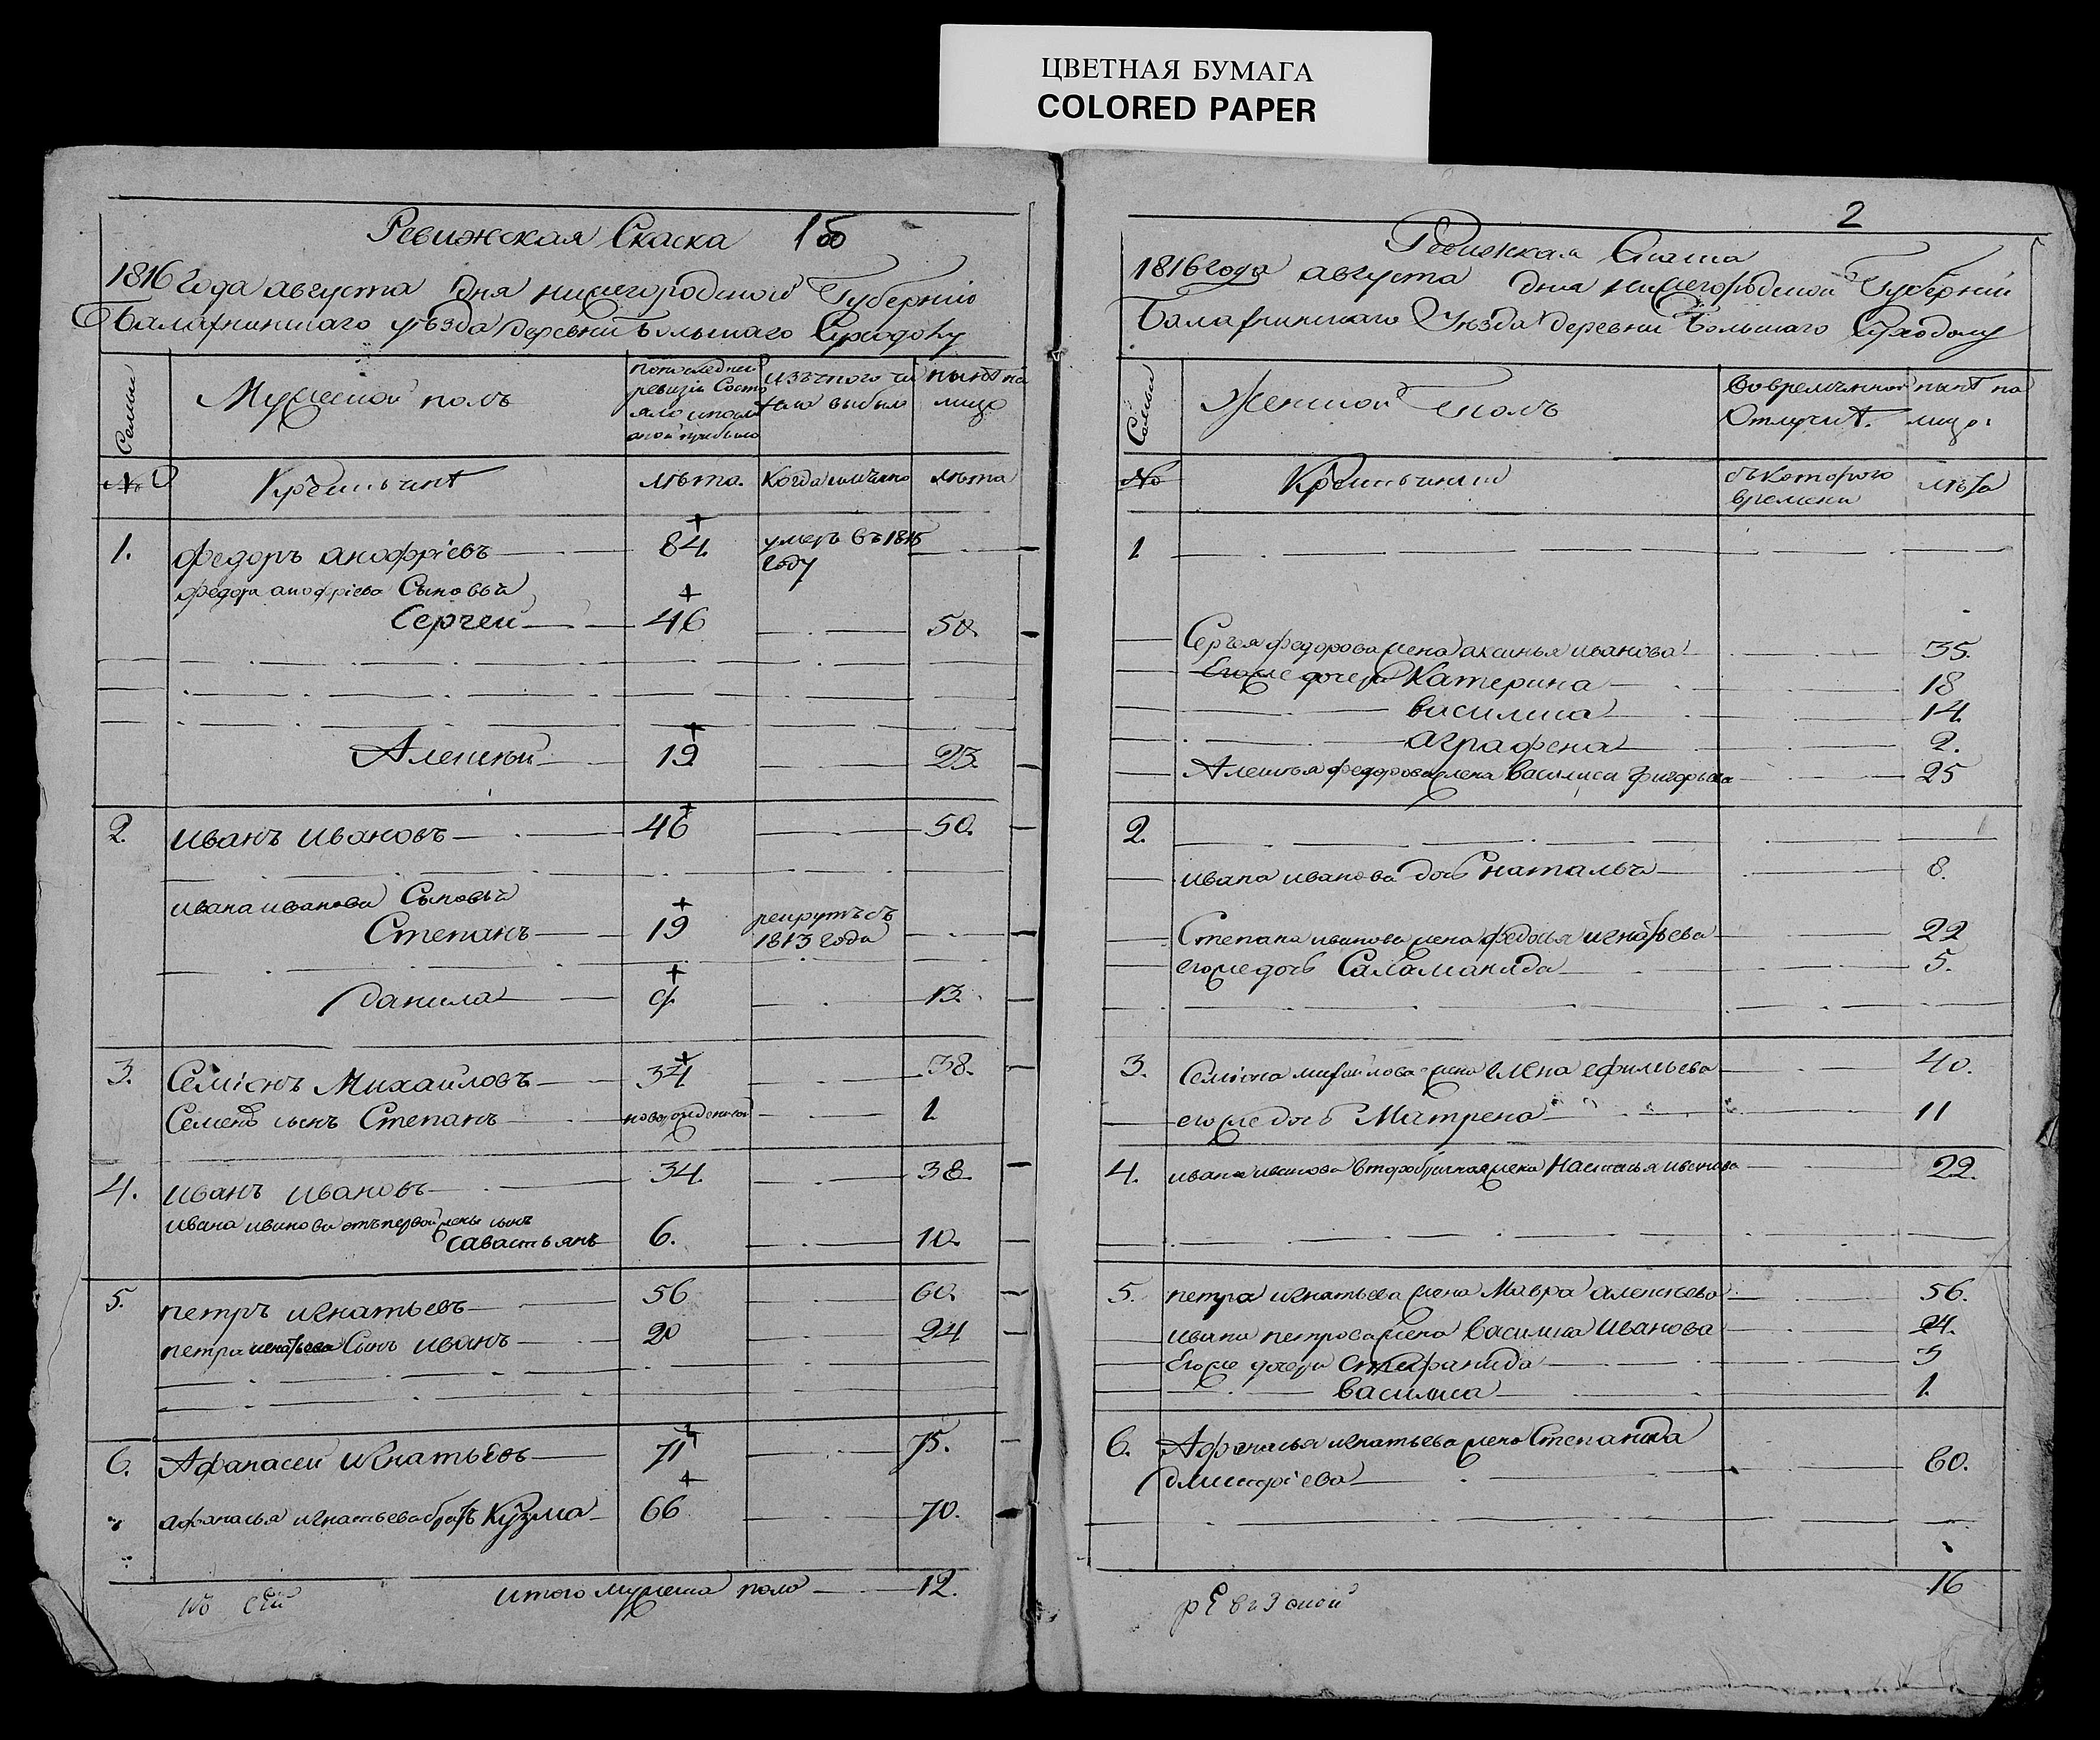 ЦВЕТНАЯ БУМАГА
COLORED PAPER
Ревижская Скаска 1об
1816 года августа дня нижегородской Губернiи
Балахнинскаго уѣзда деревни большаго Суходолу
Семьи
Мужеской полъ
по последней ревизiи состояло и после оной прибыло
изъ того числа выбыло
ныне на лицо
№
Крестьяне
лѣта.
Когда имянно
лѣта
1. федоръ анофрiевъ 84. умеръ въ 1815 году
федора анофрiева Сыновья
Сергей 46 50.
Алексѣй 19 23.
2. иванъ ивановъ 46 50.
ивана иванова Сыновья
Степанъ 19 рекрутъ съ 1813 года
данила 9. 13.
3. Семiонъ Михайловъ 34 38.
Семена сынъ Степанъ новорожденной 1.
4. иванъ ивановъ 34. 38.
ивана иванова отъ первой жены сынъ
савастьянъ 6. 10.
5. петръ игнатьевъ 56 60.
петра игнатьева Сынъ иванъ 20 24
6. Афанасей игнатьевъ 71 75.
афанасья игнатьева братъ Кузма 66 70.
итого мужеска поло 12.
къ сей
2
Ревижская Скаска
1816 года августа дня нижегородской Губернiи
Балахнинскаго Уѣзда деревни большаго Суходолу
Семьи
Женской полъ
Во временной Отлучкѣ.
ныне на лицо.
№
Крестьянки
съ которого времени
лѣта
1
Сергея федорова жена аксинья иванова 35.
Его же дочери Катерина 18
василиса 14.
аграфена 2.
Алексѣя федорова жена василиса григорьева 25
2.
ивана иванова дочь наталья 8.
Степана иванова жена федосья игнатьева 22
его же дочь Саламанида 5.
3. Семiона михайлова жена елена ефимьева 40.
его же дочь Матрена 11
4. ивана иванова второбрачная жена Настасья иванова 22.
5. петра игнатьева жена Мавра алексѣева 56.
ивана петрова жена василиса иванова 24.
Его же дочери степанида 3
василиса 1.
6. Афанасья игнатьева жена Степанида
дмитрiева 60.
16
рЕвизской